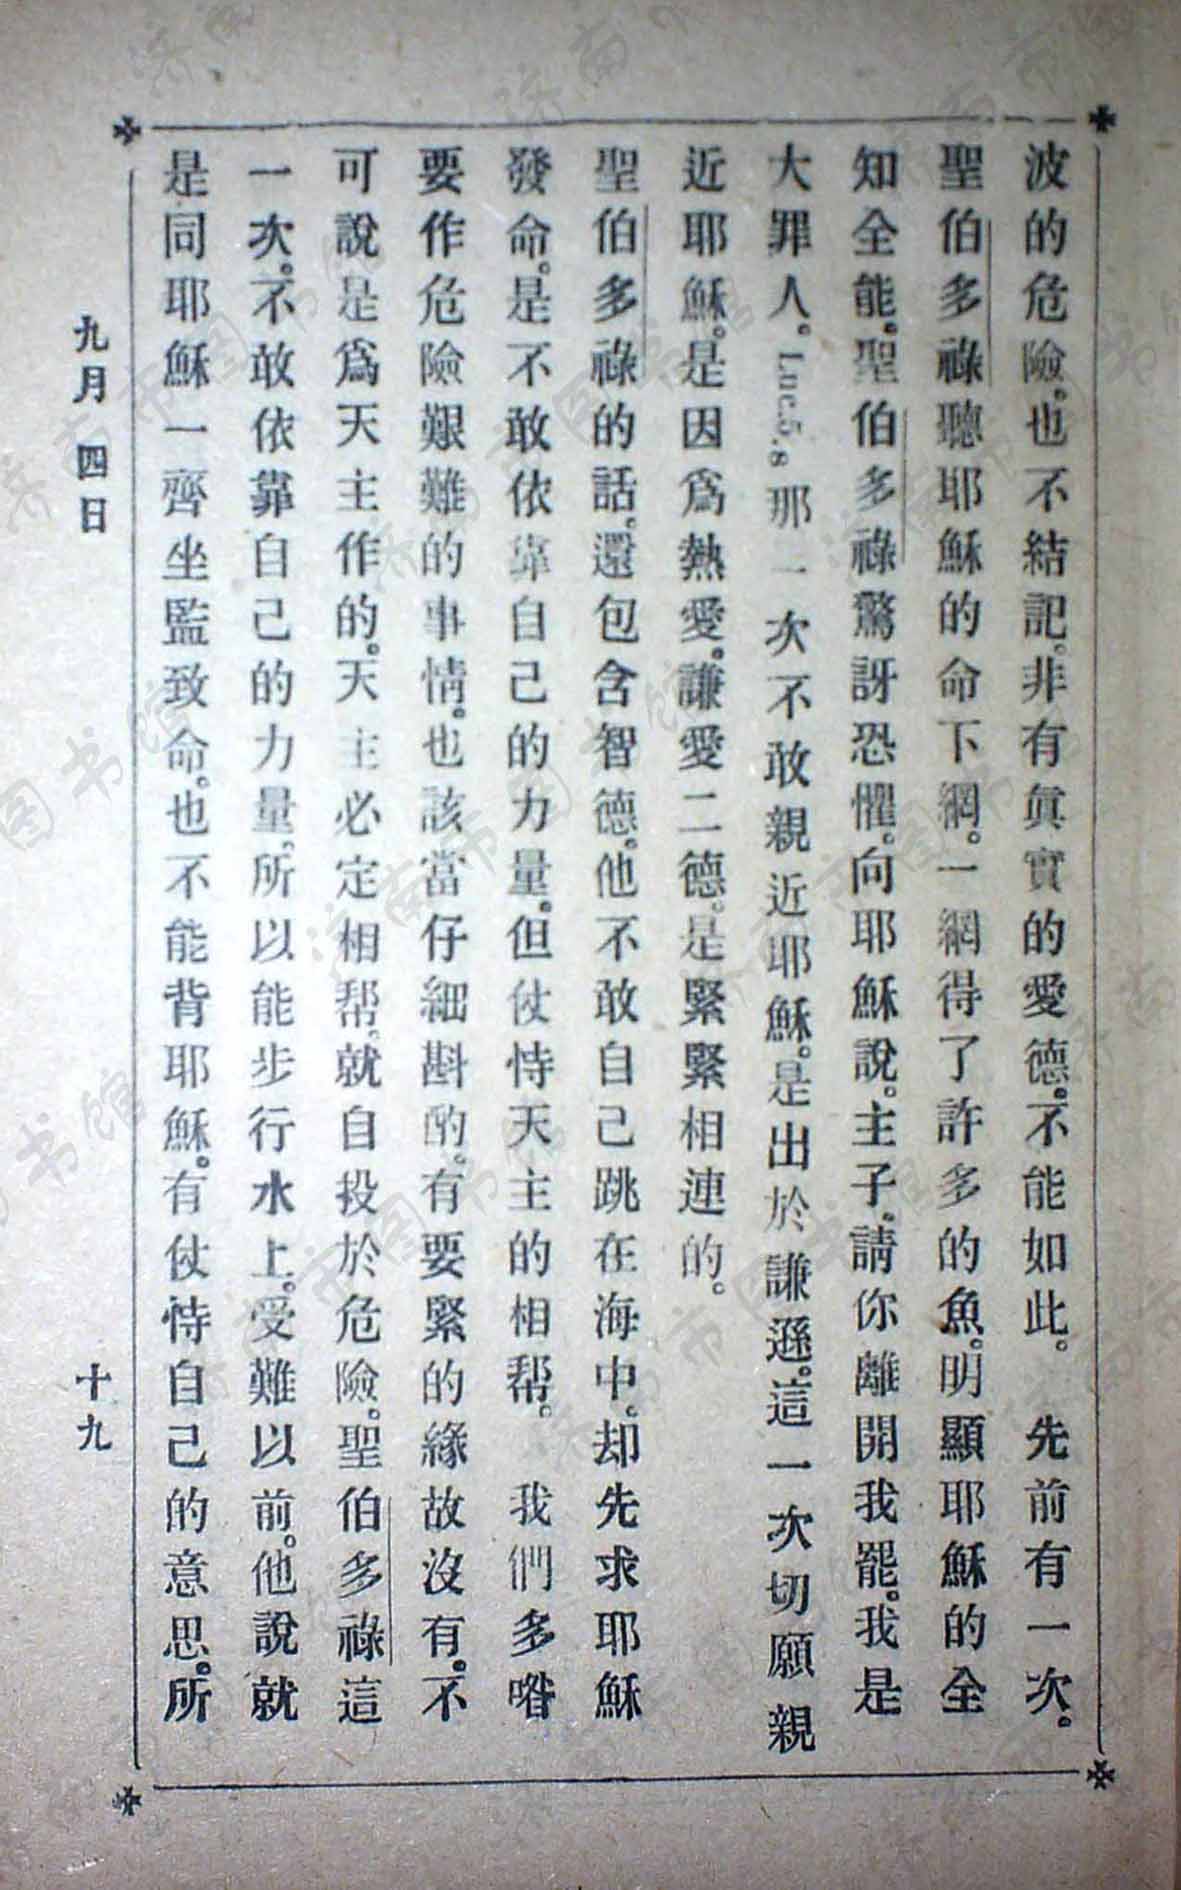 波的危險。也不結記。非有眞實的愛德。不能如此。 先前有一次。
聖伯多祿聽耶穌的命下網。一網得了許多的魚。明顯耶穌的全
知全能。聖伯多祿驚訝恐懼。向耶穌說。主子。請你離開我罷。我是
大罪人。Luc.5.8那一次不敢親近耶穌。是出於謙遜。這一次切願親
近耶穌。是因爲熱愛。謙愛二德。是緊緊相連的。
聖伯多祿的話。還包含智德。他不敢自己跳在海中。却先求耶穌
發命。是不敢依靠自己的力量。但仗恃天主的相帮。 我們多喒
要作危險艱難的事情。也該當仔細斟酌。有要緊的緣故沒有。不
可說是爲天主作的。天主必定相帮。就自投於危險。聖伯多祿這
一次。不敢依靠自己的力量。所以能步行水上。受難以前。他說就
是同耶穌一齊坐監致命。也不能背耶穌。有仗恃自己的意思。所
九月四日
十九
济南市图书馆